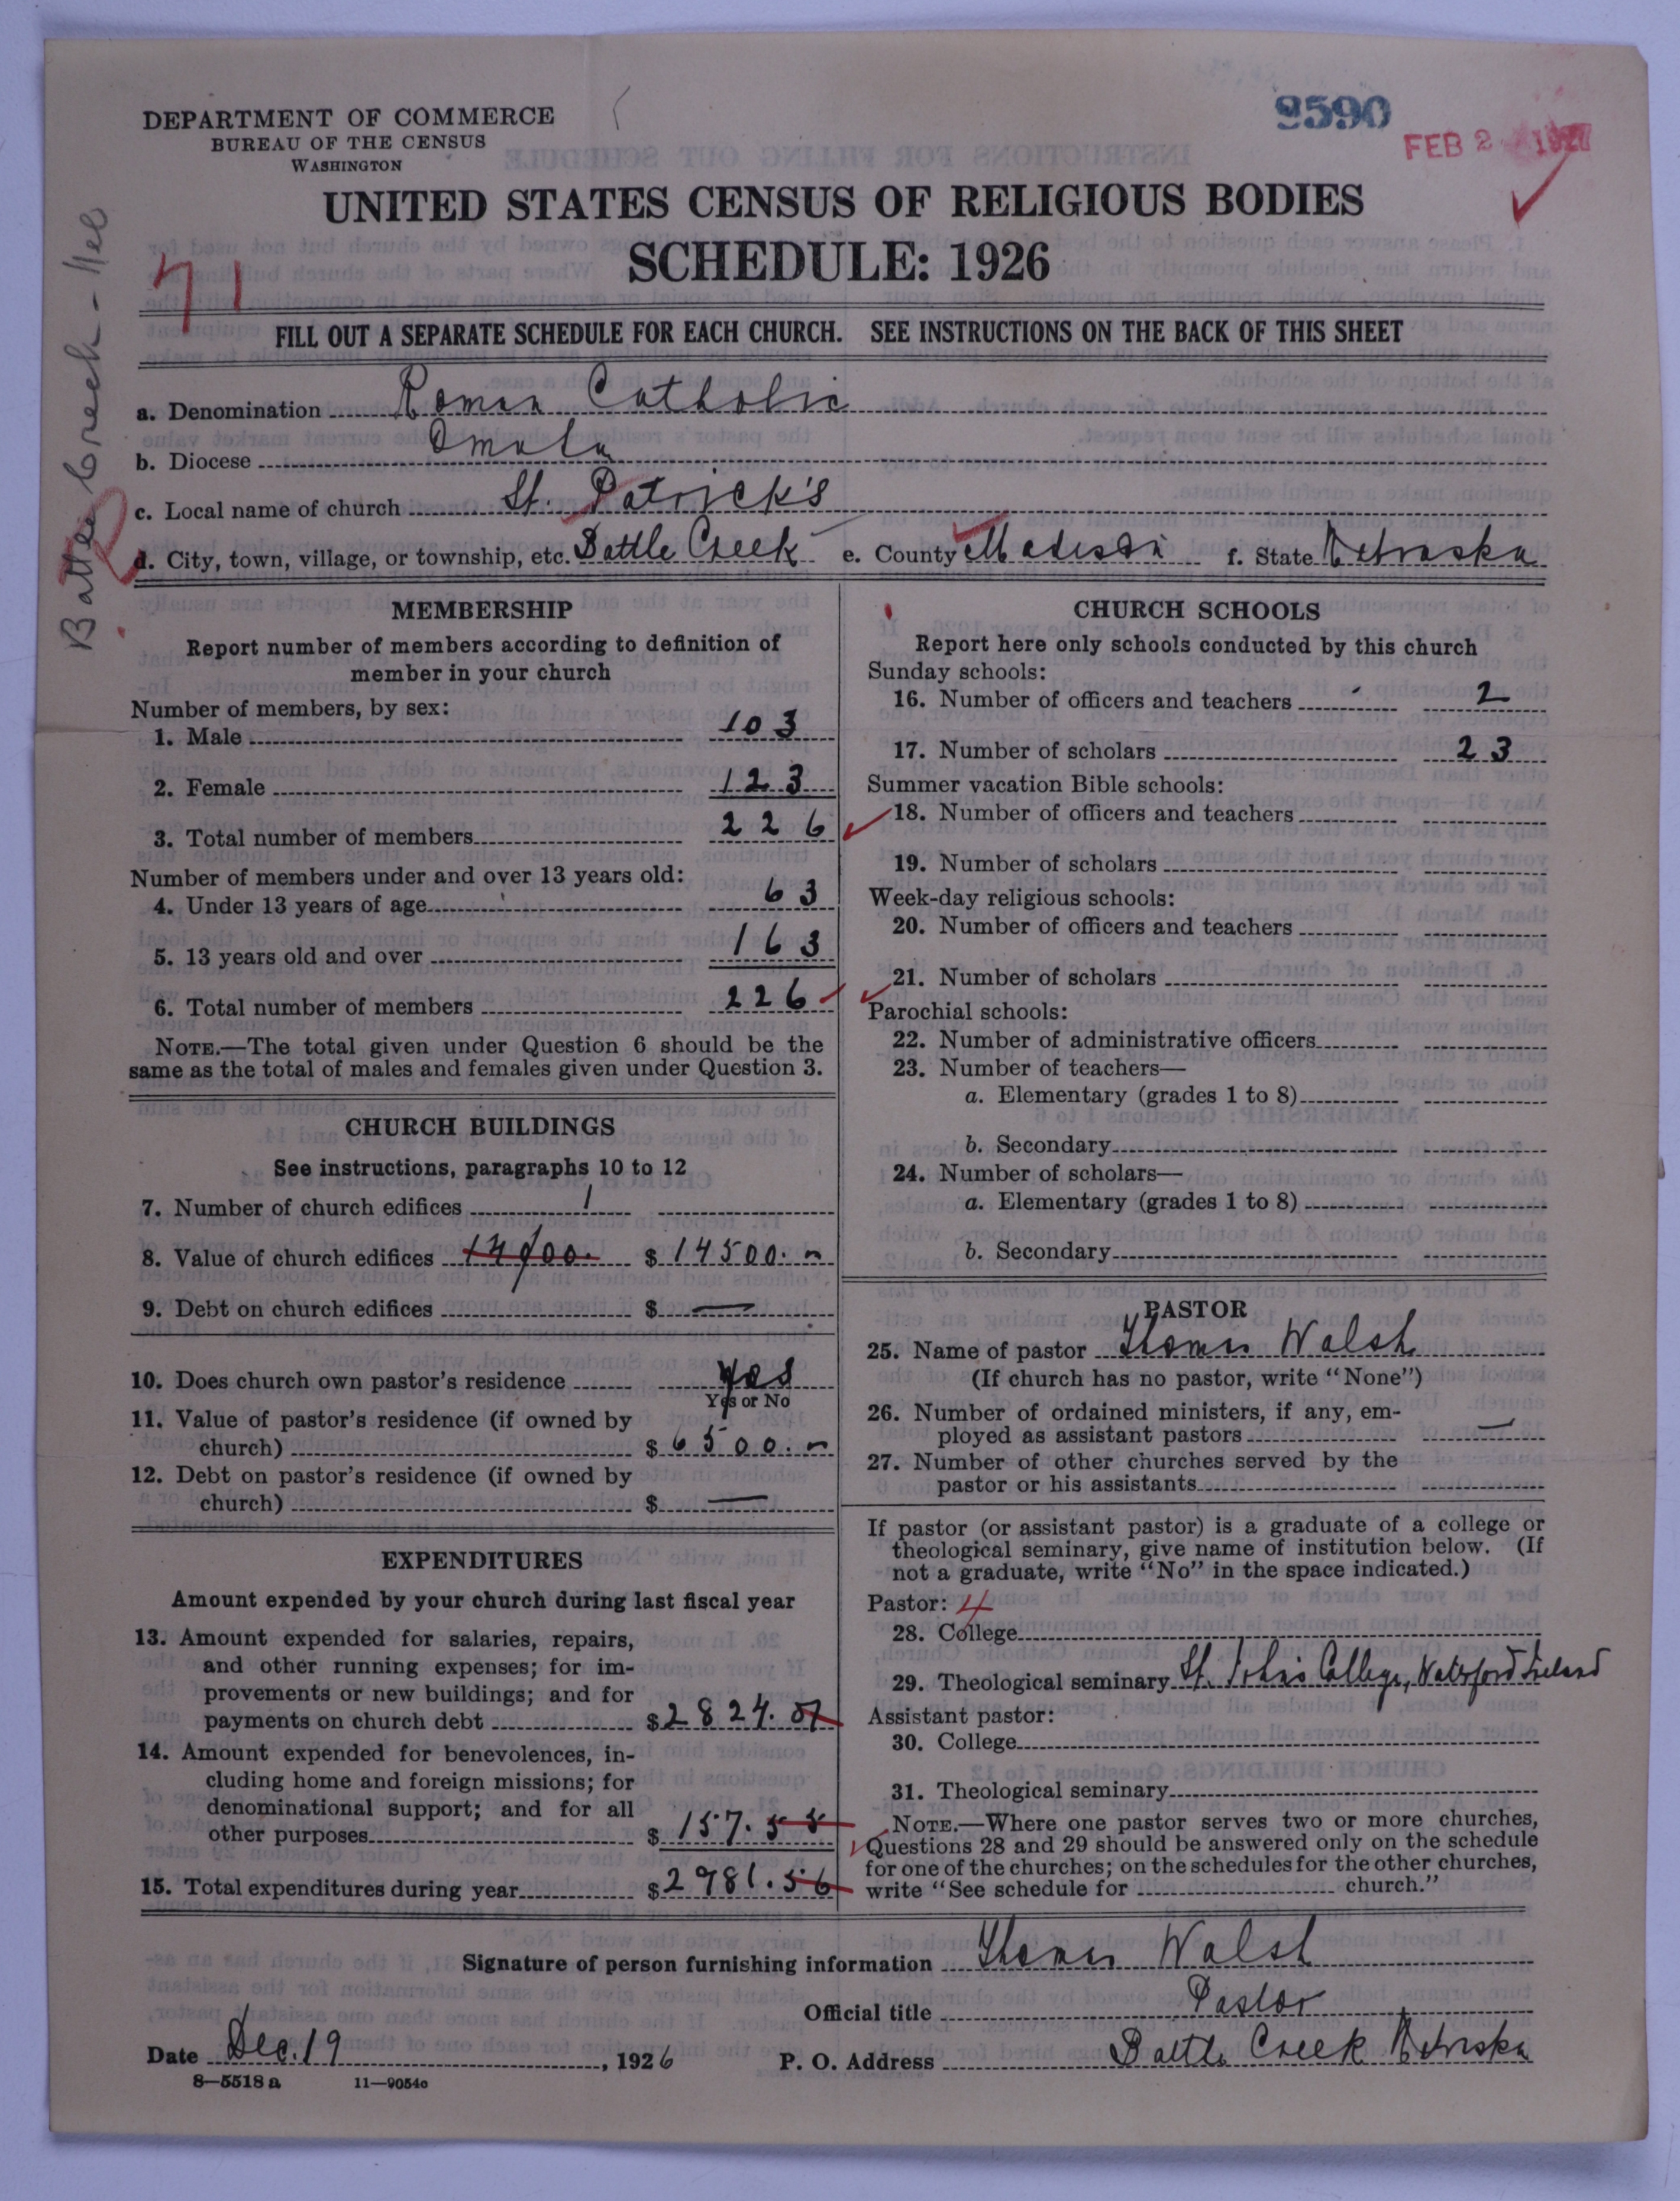 DEPARTMENT OF COMMERCE
BUREAU OF THE CENSUS
WASHINGTON
9590
FEB 2 1927
UNITED STATES CENSUS OF RELIGIOUS BODIES
SCHEDULE: 1926
71
Battle Creek - Neb
FILL OUT A SEPARATE SCHEDULE FOR EACH CHURCH. SEE INSTRUCTIONS ON THE BACK OF THIS SHEET
a. Denomination Roman Catholic
b. Diocese Omaha
c. Local name of church St. Patrick's
d. City, town, village, or township, etc. Battle Creek e. County Madison f. State Nebraska
MEMBERSHIP
Report number of members according to definition of
member in your church
Number of members, by sex:
1. Male 103
2. Female 123
3. Total number of members 226
Number of members under and over 13 years old:
4. Under 13 years of age 63
5. 13 years old and over 163
6. Total number of members 226
NOTE.—The total given under Question 6 should be the
same as the total of males and females given under Question 3.
CHURCH BUILDINGS
See instructions, paragraphs 10 to 12
7. Number of church edifices 1
8. Value of church edifices $ 14500.
9. Debt on church edifices $ —
10. Does church own pastor's residence Yes
Yes or No
11. Value of pastor's residence (if owned by
church) $ 6500.
12. Debt on pastor's residence (if owned by
church) $ —
EXPENDITURES
Amount expended by your church during last fiscal year
13. Amount expended for salaries, repairs,
and other running expenses; for im-
provements or new buildings; and for
payments on church debt $ 2824.01
14. Amount expended for benevolences, in-
cluding home and foreign missions; for
denominational support; and for all
other purposes $ 157.55
15. Total expenditures during year $ 2981.56
CHURCH SCHOOLS
Report here only schools conducted by this church
Sunday schools:
16. Number of officers and teachers 2
17. Number of scholars 23
Summer vacation Bible schools:
18. Number of officers and teachers
19. Number of scholars
Week-day religious schools:
20. Number of officers and teachers
21. Number of scholars
Parochial schools:
22. Number of administrative officers
23. Number of teachers—
a. Elementary (grades 1 to 8)
b. Secondary
24. Number of scholars—
a. Elementary (grades 1 to 8)
b. Secondary
PASTOR
25. Name of pastor Thomas Walsh
(If church has no pastor, write "None")
26. Number of ordained ministers, if any, em-
ployed as assistant pastors —
27. Number of other churches served by the
pastor or his assistants
If pastor (or assistant pastor) is a graduate of a college or
theological seminary, give name of institution below. (If
not a graduate, write "No" in the space indicated.)
Pastor: 4
28. College
29. Theological seminary St. John's College, Waterford Ireland
Assistant pastor:
30. College
31. Theological seminary
NOTE.—Where one pastor serves two or more churches,
Questions 28 and 29 should be answered only on the schedule
for one of the churches; on the schedules for the other churches,
write "See schedule for church."
Signature of person furnishing information Thomas Walsh
Official title Pastor
Date Dec. 19, 1926 P. O. Address Battle Creek Nebraska
8—5518 a 11—9054c